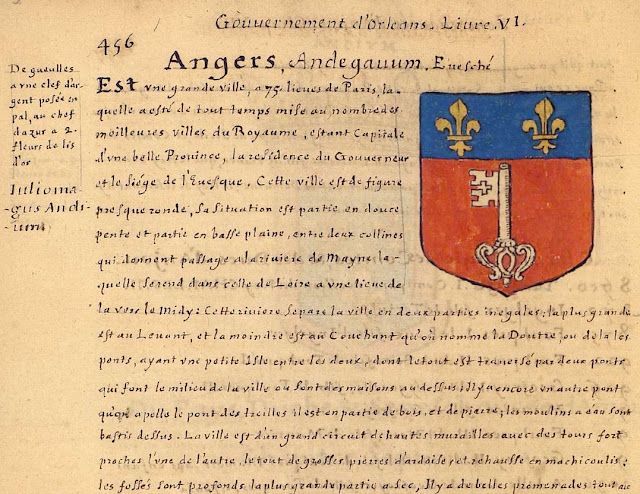 Gouuernement d'Orleans. Livre. VI.
456
Angers, Andegauum. Euesché
De gueulles
a vne clef d'ar
gent posée en
pal, au chef
d'azur a 2.
fleurs de lis
d'or
Iulioma-
-gus Andi-
-uum
Est vne grande ville, a 75. lieues de Paris, la-
quelle a esté de tout temps mise au nombre des
meilleures villes du Royaume, estant Capitale
d'vne belle Prouince, la residence du Gouuerneur
et le Siége de l'Euesque. Cette ville est de figure
presque ronde, sa situation est partie en douce
pente et partie en basse plaine, entre deux collines
qui donnent passage a la riuiere de Mayne la-
quelle se rend dans celle de Loire a vne lieue de
la vers le Midy: Cette riuiere separe la ville en deux parties inegales; la plus grande
est au Leuant, et la moindre est au Couchant qu'on nomme la Doutre, ou de la les
ponts, ayant vne petite Isle entre les deux, dont le tout est trauersé par deux ponts
qui font le milieu de la ville ou sont des maisons au dessus: il y a encore vn autre pont
qu'on apelle le pont des treilles il est en partie de bois, et de pierre; les moulins a eau sont
bastis dessus. La ville est d'un grand circuit de hautes murailles auec des tours fort
proches l'vne de l'autre, le tout de grosses pierres d'ardoise, et rehaussé en machicoulis:
les fossés sont profonds la plus grande partie a sec, Il y a de belles promenades tout au